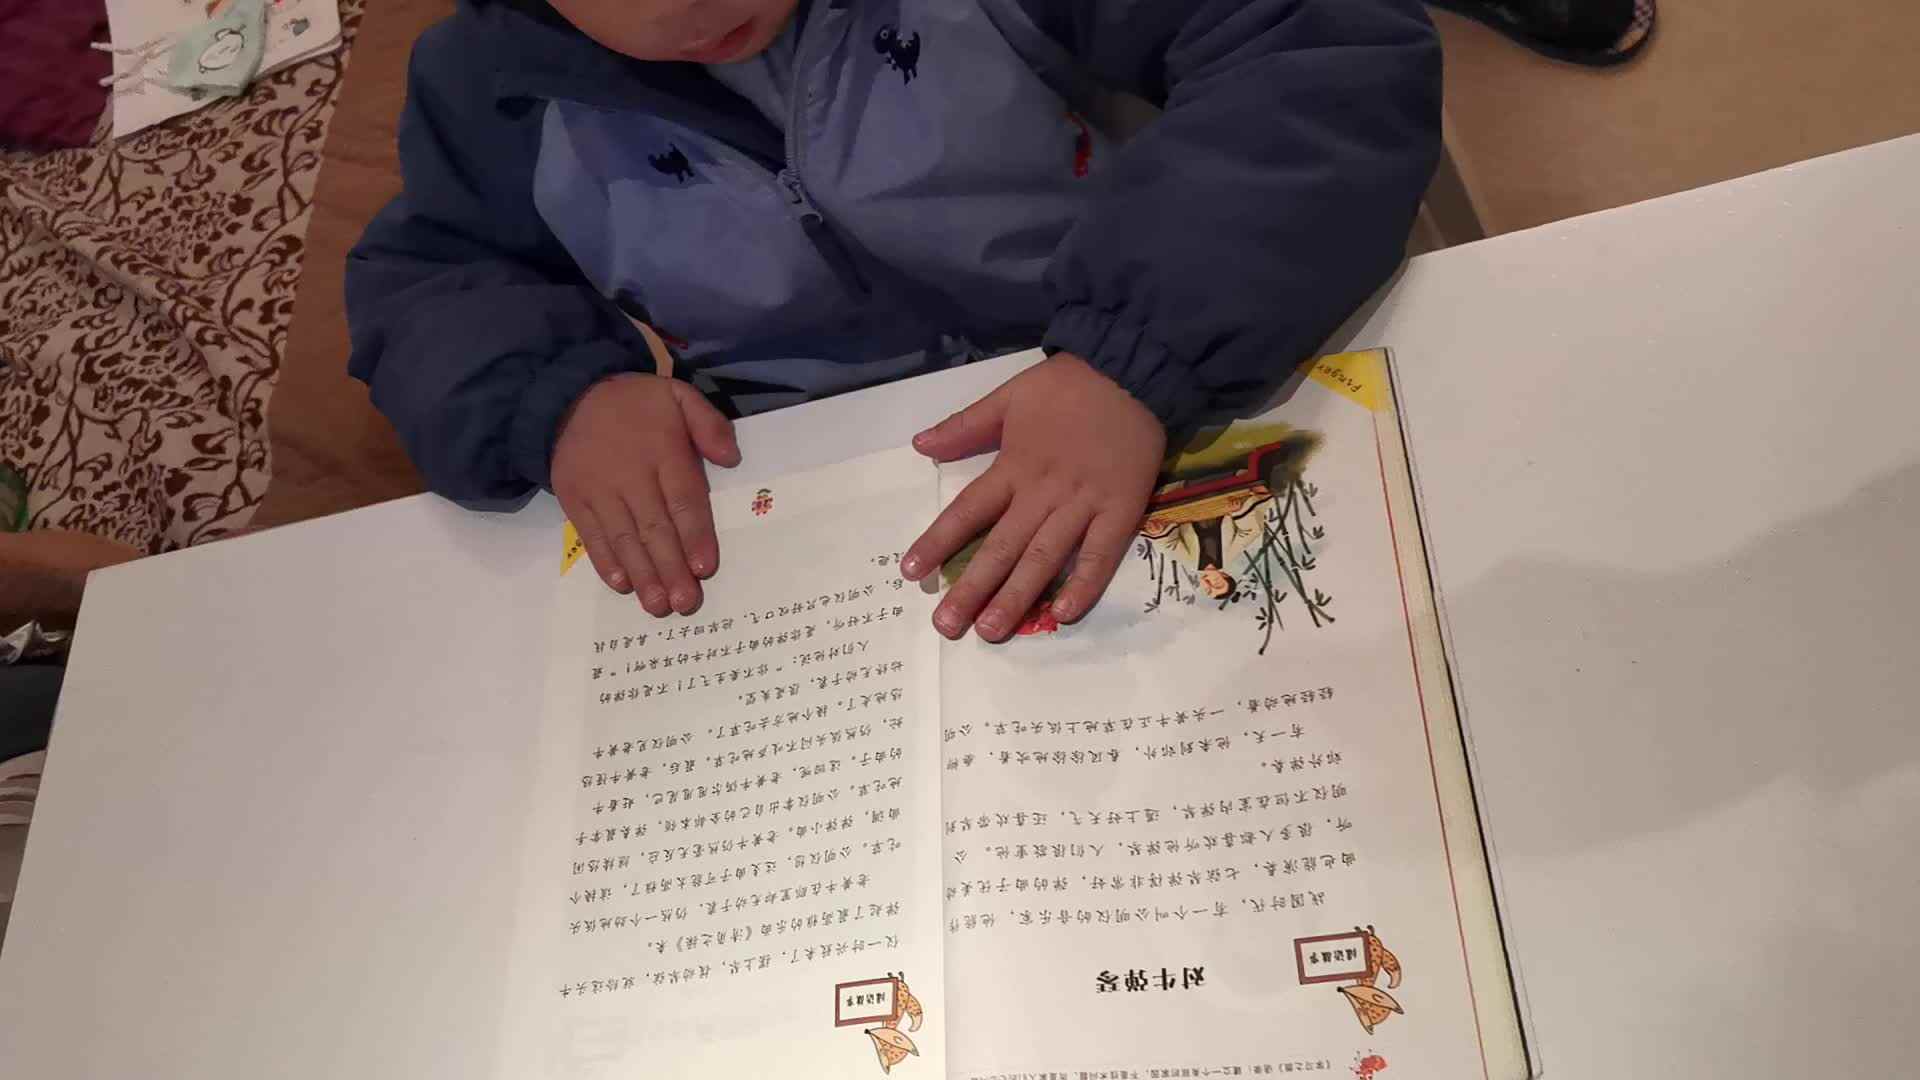 成语故事
对牛弹琴
战国时代，有一个叫公明仪的音乐家，他能作
曲也能演奏，七弦琴弹得非常好，弹的曲子优美动
听，很多人都喜欢听他弹琴，人们很敬重他。公
明仪不但在室内弹琴，遇上好天气，还喜欢带琴到
郊外弹奏。
有一天，他来到郊外，春风徐徐地吹着，垂柳
轻轻地动着，一头黄牛正在草地上低头吃草。公明
Finger
成语故事
仪一时兴致来了，摆上琴，拨动琴弦，就给这头牛
弹起了最高雅的乐曲《清角之操》来。
老黄牛在那里却无动于衷，仍然一个劲地低头
吃草。公明仪想，这支曲子可能太高雅了，该换个
曲调，弹弹小曲。老黄牛仍然毫无反应，继续悠闲
地吃草。公明仪拿出自己的全部本领，弹奏最拿手
的曲子。这回呢，老黄牛偶尔甩甩尾巴，赶着牛
虻，仍然低头闷不吭声地吃草。最后，老黄牛慢悠
悠地走了。换个地方去吃草了。公明仪见老黄牛
始终无动于衷，很是失望。
人们对他说：“你不要生气了！不是你弹的
曲子不好听，是你弹的曲子不对牛的耳朵啊！”最
后，公明仪也只好叹口气，抱琴回去了。真是自找
没趣。